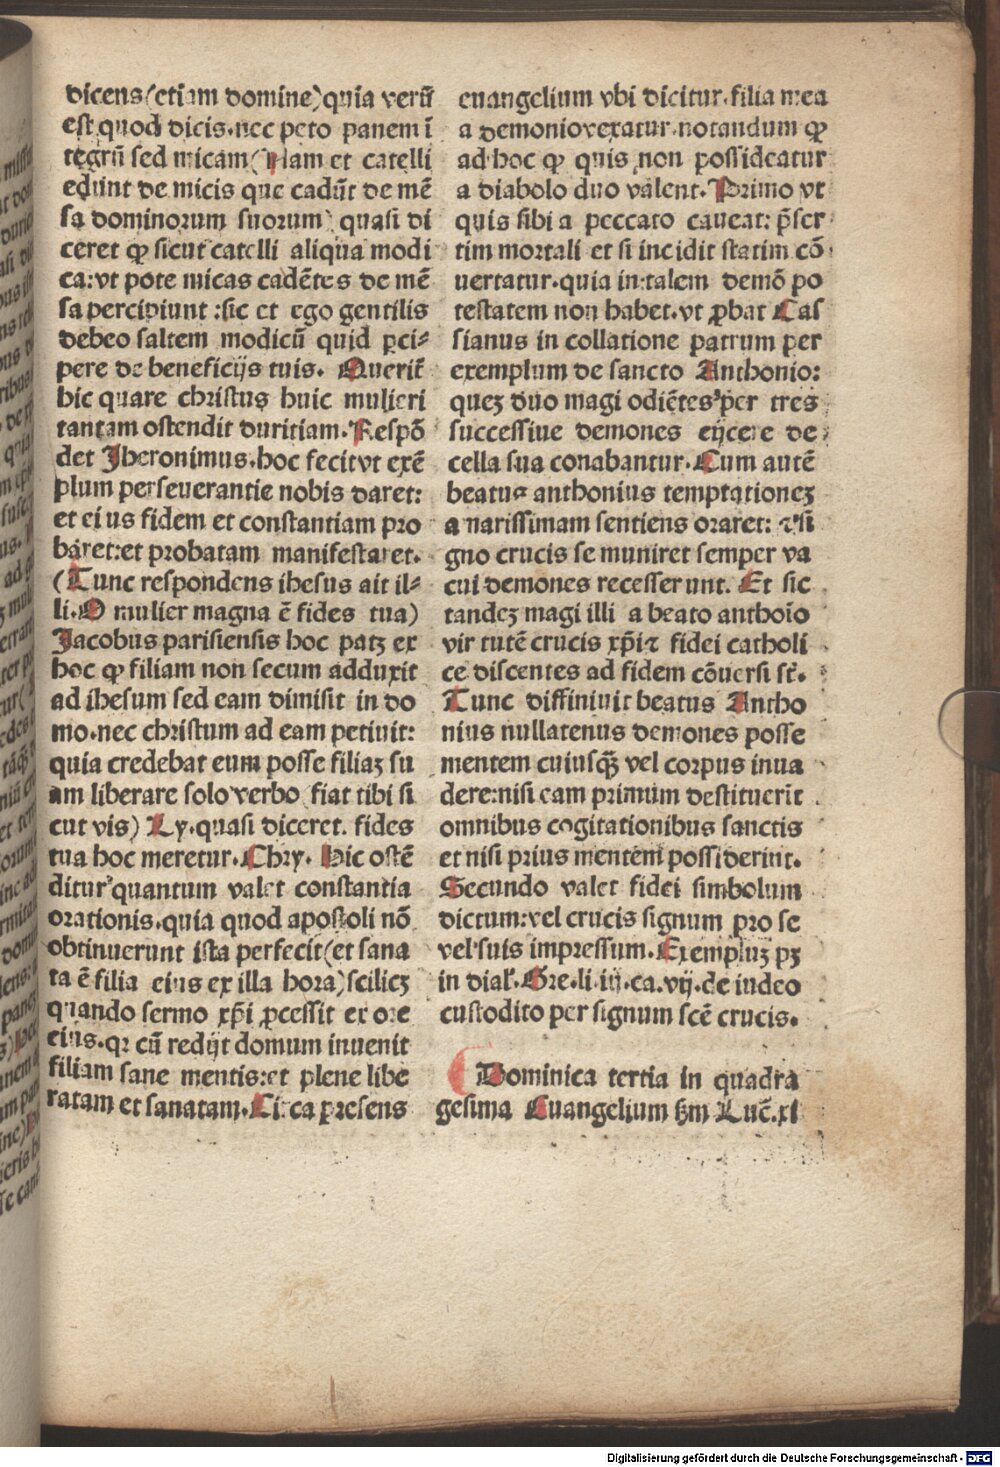 dicens(etiam domine)quia verũ
est quod dicis.nec peto panem ĩ
tegrũ sed micam(Nam et catelli
edunt de micis que cadũt de mẽ
sa dominorum suorum) quasi di
ceret ꝙ sicut catelli aliqua modi
ca:vt pote micas cadẽtes de mẽ
sa percipiunt :sic et ego gentilis
debeo saltem modicũ quid ꝑci⸗
pere de beneficijs tuis. Querit̃
hic quare christus huic mulieri
tantam ostendit duritiam.Respõ
det Jheronimus.hoc fecit vt exẽ
plum perseuerantie nobis daret:
et eius fidem et constantiam pro
baret:et probatam manifestaret.
(Tunc respondens ihesus ait il⸗
li.O mulier magna ẽ fides tua)
Jacobus parisiensis hoc patꝫ ex
hoc ꝙ filiam non secum adduxit
ad ihesum sed eam dimisit in do
mo.nec christum ad eam petiuit:
quia credebat eum posse filiaꝫ su
am liberare solo verbo fiat tibi si
cut vis) Ly.quasi diceret. fides
tua hoc meretur.Chry. Hic ostẽ
ditur quantum valet constantia
orationis.quia quod apostoli nõ
obtinuerunt ista perfecit(et sana
ta ẽ filia eius ex illa hora)scilicꝫ
quando sermo xp̃i ꝓcessit ex ore
eius.qꝛ cũ redijt domum inuenit
filiam sane mentis:et plene libe
ratam et sanatam.Circa presens
euangelium vbi dicitur.filia mea
a demonio vexatur.notandum ꝙ
ad hoc ꝙ quis non possideatur
a diabolo duo valent.Primo vt
quis sibi a peccato caueat: p̃ser
tim mortali et si incidit statim cõ
uertatur.quia in talem demõ po
testatem non habet.vt ꝓbat Cas
sianus in collatione patrum per
exemplum de sancto Anthonio:
queꝫ duo magi odiẽtes per tres
successiue demones eijcere de
cella sua conabantur.Cum autẽ
beatus anthonius temptationeꝫ
a narissimam sentiens oraret: ⁊ si
gno crucis se muniret semper va
cui demones recesserunt. Et sic
tandeꝫ magi illi a beato anthoĩo
virtutẽ crucis xp̃i ⁊ fidei catholi
ce discentes ad fidem cõuersi st̃.
Tunc diffiniuit beatus Antho
nius nullatenus demones posse
mentem cuiusqꝫ vel corpus inua
dere:nisi eam primum destituerĩt
omnibus cogitationibus sanctis
et nisi prius mentem possiderint.
Secundo valet fidei simbolum
dictum:vel crucis signum pro se
vel suis impressum.Exempluꝫ pꝫ
in dial'.Gre.li.iij.ca.vij.de iudeo
custodito per signum scẽ crucis.
Dominica tertia in quadra
gesima Euangelium ẜm Lucẽ.xi
Digitalisierung gefördert durch die Deutsche Forschungsgemeinschaft - DFG